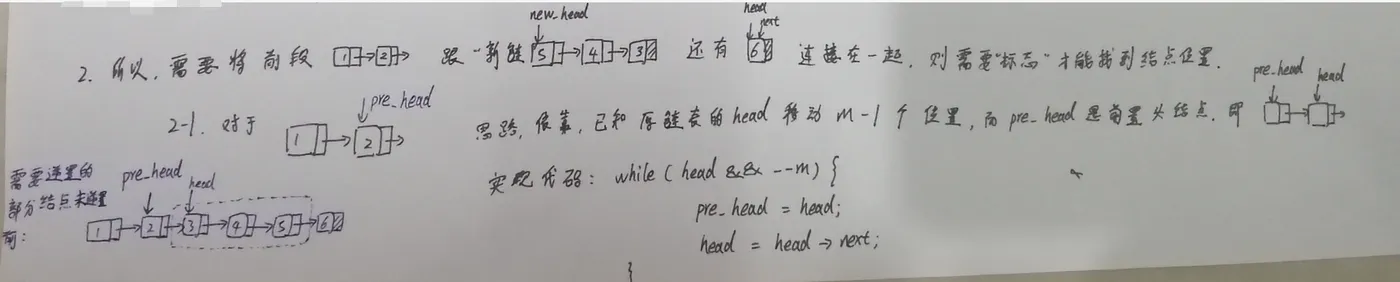 new_head
head
next
2. 所以,需要将前段 1 2 跟一新链 5 4 3 还有 6 连接在一起,则需要"标志"才能找到结点位置.
pre_head
pre_head head
2-1. 对于 1 2 思路,依靠,已知原链表的head移动 m-1 个位置,而pre_head是前置头结点,即
需要逆置的
部分结点未逆置
前:
pre_head
head
1 2 3 4 5 6
实现代码: while (head && --m) {
pre_head = head;
head = head → next;
}